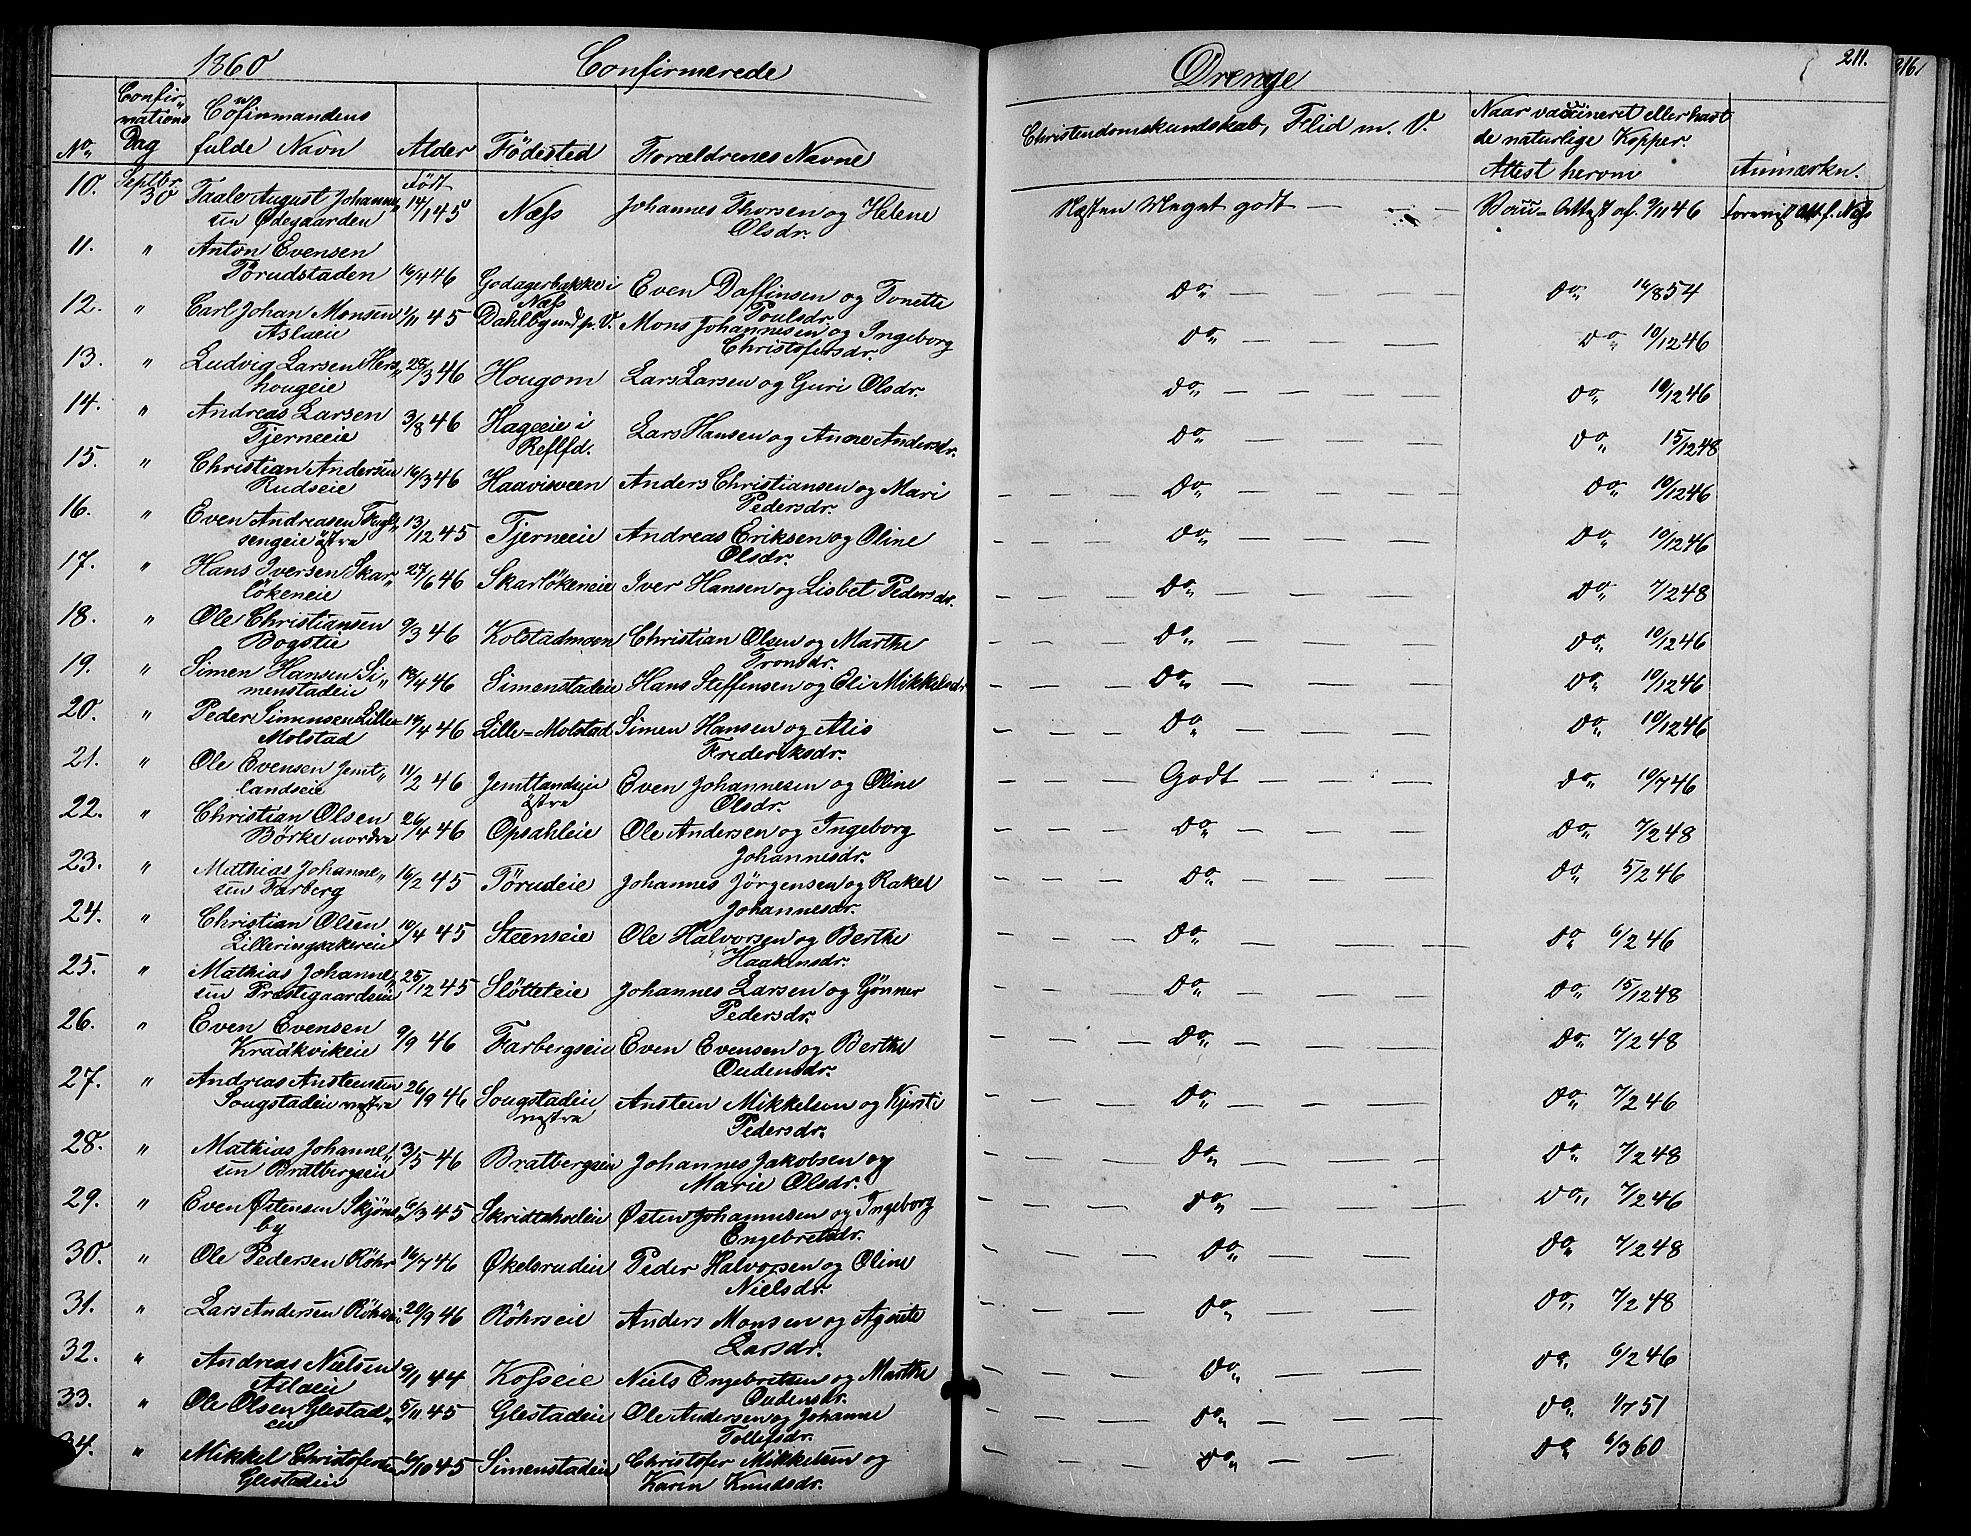 1860 Confirmerede Drenge 211.
216.
No. Confirmations Dag Cofirmandens fulde Navn Alder Födested Forældrenes Navne Christendomskundskab, Flid m. V. Naar vaccineret eller havt de naturlige Kopper. Attest herom Anmærkn.
10. Septbr. 30 Taale August Johanne„ Født 14/1 45 Næss Johannes Thorsen og Helene Næsten Meget godt — — — Vacc= Attest af 9/11 46 Forevist Att. f. Næss
sen Ødegaarden Olsdr.
11. „ Anton Evensen
Torudstaden 16/4 46 Godagerbakke i Even Daffinsen og Tonette Do — — — — Do 16/8 54
Næss Poulsdr.
12. „ Carl Johan Monsen 1/11 45 Dahlby Mons Johannesen og Ingeborg Do — — — — Do 10/12 46
Aslaeie Christofersdr.
13. „ Ludvig Larsen Hers„ 28/3 46 Hougom Lars Larsen og Guri Olsdr. Do — — — — Do 10/12 46
hougeie
14. „ Andreas Larsen 3/8 46 Hageeie i Lars Hansen og Anne Andersdr. Do — — — — Do 15/12 48
Tjerneeie Reflfd.
15. „ Christian Andersen 16/3 46 Haavisveen Anders Christiansen og Mari Do — — — — Do 10/12 46
Rudseie Pedersdr.
16. „ Even Andreasen Fugl„ 13/12 45 Tjerneeie Andreas Eriksen og Oline Do — — — — Do 10/12 46
sengeie östre Olsdr.
17. „ Hans Iversen Skar„ 27/6 46 Skarlökeneie Iver Hansen og Lisbet Pedersdr. Do — — — — Do 7/2 48
lökeneie
18. „ Ole Christiansen 9/3 46 Kolstadmoen Christian Olsen og Marthe Do — — — — Do 10/12 46
Bogstie Tronsdr.
19. „ Simen Hansen Si„ 18/4 46 Simenstadeie Hans Steffensen og Eli Mikkelsdr. Do — — — — Do 10/12 46
menstadeie
20. „ Peder Simensen Lille= 19/4 46 Lille=Molstad Simen Hansen og Alis Do — — — — Do 10/12 46
Molstad Frederiksdr.
21. „ Ole Evensen Jemt„ 11/2 46 Jemtlandseie Even Johannesen og Oline Godt — — — — Do 10/7 46
landseie östre Olsdr.
22. „ Christian Olsen 26/4 46 Opsahleie Ole Andersen og Ingeborg Do — — — — Do 7/2 48
Börke nordre Johannesdr.
23. „ Mathias Johanne„ 16/2 45 Törudeie Johannes Jörgensen og Rakel Do — — — — Do 5/2 46
sen Farberg Johannesdr.
24. „ Christian Olsen 10/4 45 Steenseie Ole Halvorsen og Berthe Do — — — — Do 6/2 46
Lilleringsakereie Haakensdr.
25. „ Mathias Johanne„ 25/12 45 Slötteeie Johannes Larsen og Gönner Do — — — — Do 15/12 48
sen Prestegaardseie Pedersdr.
26. „ Even Evensen 9/9 46 Farbergseie Even Evensen og Berthe Do — — — — Do 7/2 48
Kraakvikeie Oudensdr.
27. „ Andreas Ansteensen 26/9 46 Sougstadeie Anstein Mikkelsen og Kjersti Do — — — — Do 7/2 46
Sougstadeie vestre vestre Pedersdr.
28. „ Mathias Johanne„ 3/5 46 Bratbergseie Johannes Jakobsen og Do — — — — Do 7/2 48
sen Bratbergseie Marie Olsdr.
29. „ Even Østensen Skjöns„ 6/3 45 Skridtshoeleie Østen Johannesen og Ingeborg Do — — — — Do 7/2 46
by Engebretsdr.
30. „ Ole Pedersen Röhr 16/7 46 Økelsrudeie Peder Halvorsen og Oline Do — — — — Do 7/2 48
Nielsdr.
31. „ Lars Andersen Röhrseie 20/9 46 Röhrseie Anders Monsen og Agnete Do — — — — Do 7/2 48
Larsdr.
32. „ Andreas Nielsen 9/1 44 Kosseie Niels Engebretsen og Marthe Do — — — — Do 6/2 46
Aslaeie Oudensdr.
33. „ Ole Olsen Glestad„ 5/11 45 Glestadeie Ole Andersen og Johanne Do — — — — Do 1/7 51
eie Tollefsdr.
34. „ Mikkel Christofersen 6/10 45 Simenstadeie Christofer Mikkelsen og Do — — — — Do 6/3 60
Glestadeie Karin Knudsdr.